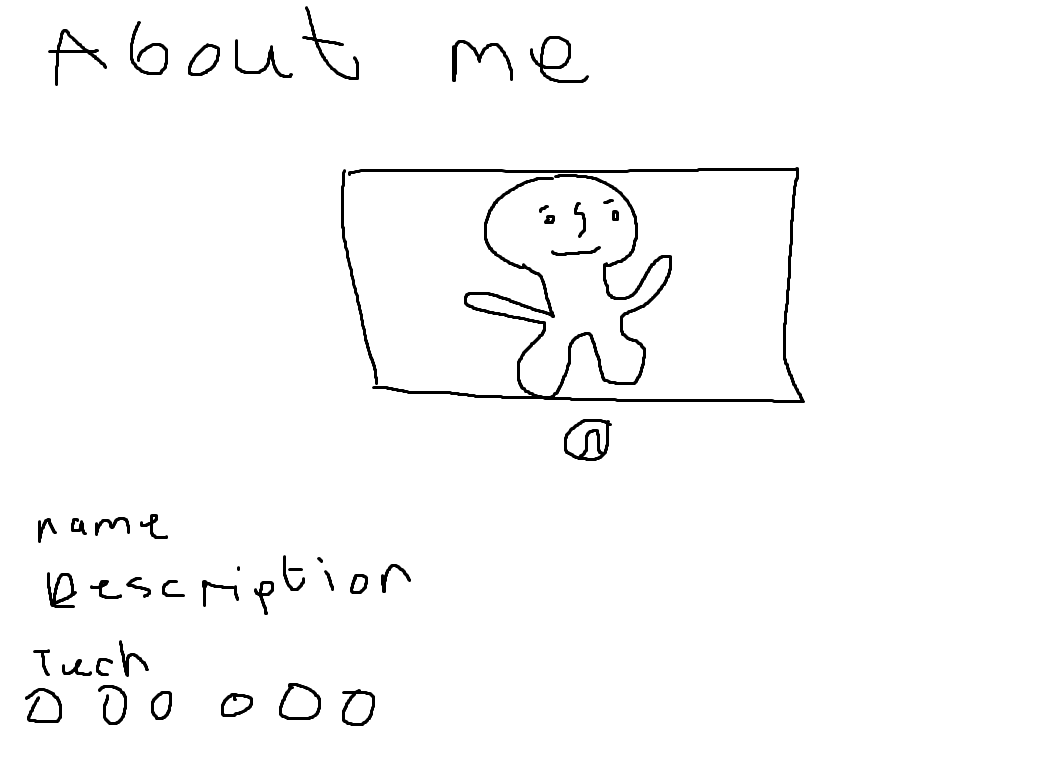 About me
name
Description
Tech